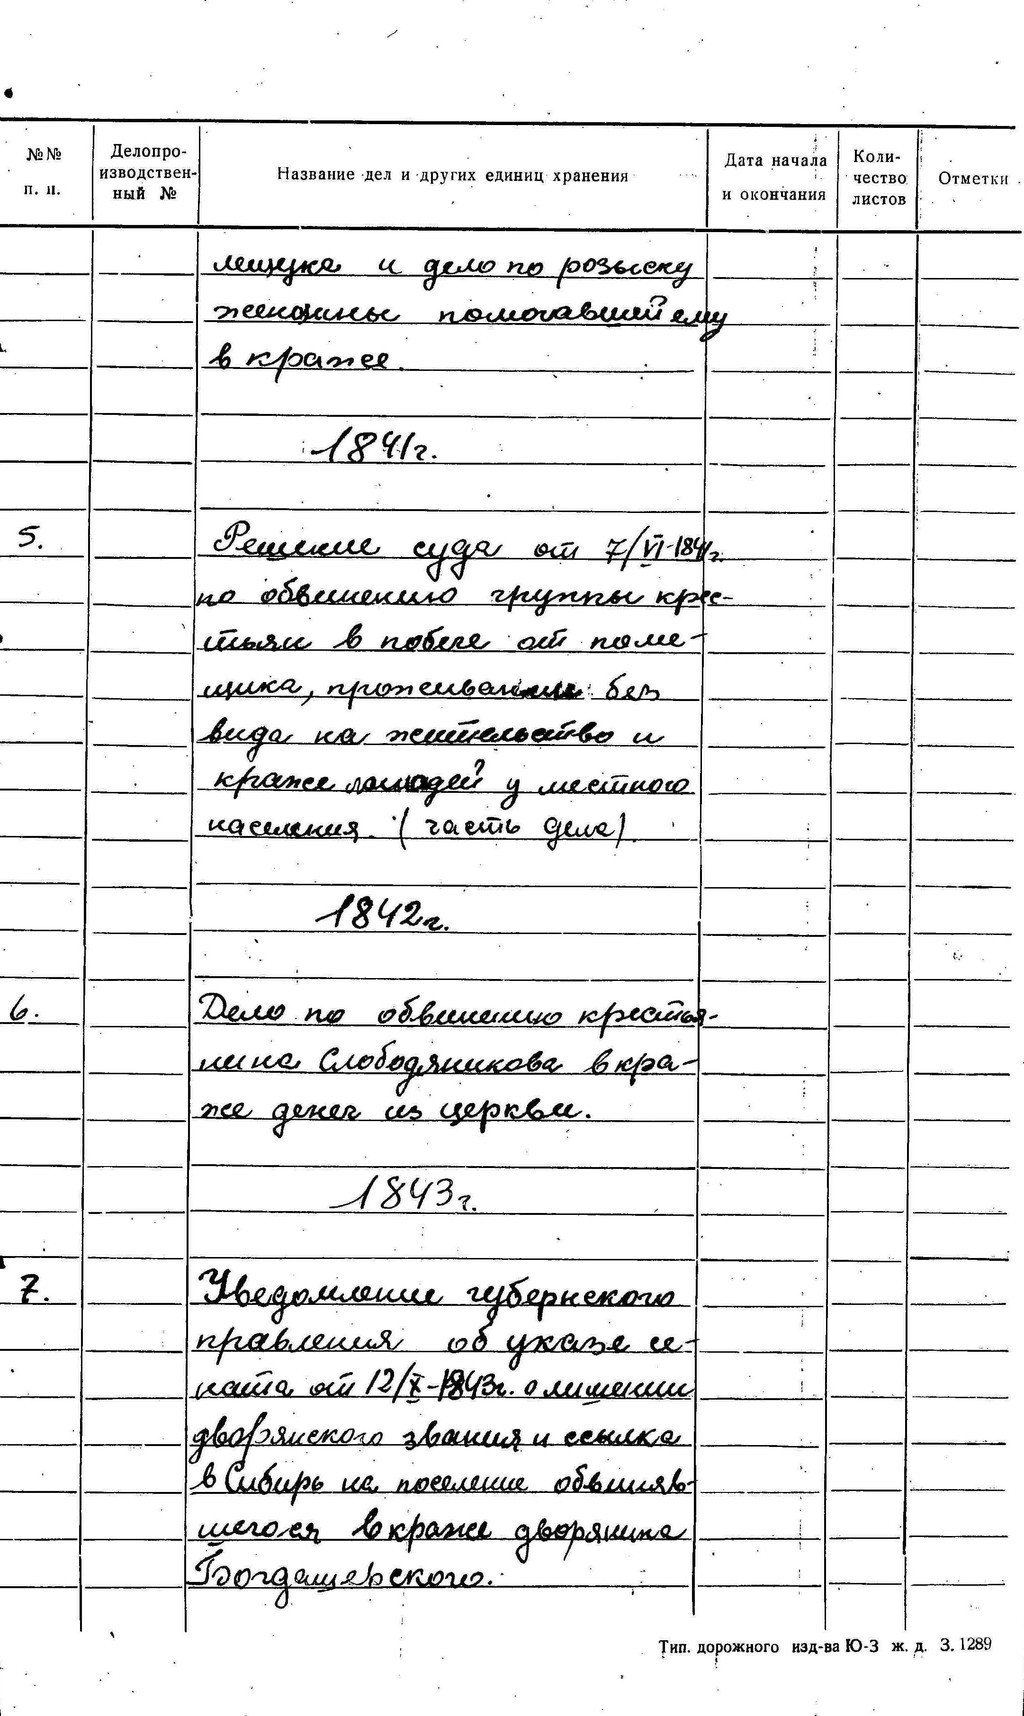 №№ п. п.
Делопро-
изводствен-
ный №
Название дел и других единиц хранения
Дата начала
и окончания
Коли-
чество
листов
Отметки
мещука и дело по розыску
женщины помогавшей ему
в краже.
1841г.
5. Решение суда от 7/VI-1841г.
по обвинению группы крес-
тьян в побеге от поме-
щика, проживании без
вида на жительство и
краже лошадей у местного
населения. (часть дела)
1842г.
6. Дело по обвинению крестья-
нина Слободяникова в кра-
же денег из церкви.
1843г.
7. Уведомление губернского
правления об указе се-
ната от 12/X-1843г. о лишении
дворянского звания и ссылка
в Сибирь на поселение обвиняв-
шегося в краже дворянина
Богдашевского.
Тип. дорожного изд-ва Ю-З ж. д. З. 1289